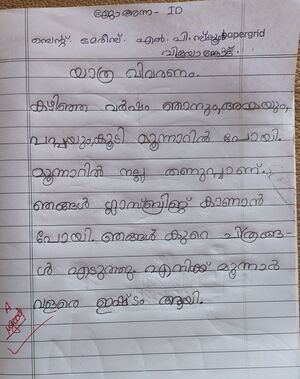 ജോഅന്ന - ID
സെന്റ് മേരീസ് എൽ. പി. സ്കൂൾ papergrid
വിഴോ
യാത്ര വിവരണം.
കഴിഞ്ഞ വർഷം ഞാനും, അമ്മയും,
പപ്പയും, കൂടി മൂന്നാറിൽ പോയി.
മൂന്നാറിൽ നല്ല തണുപ്പാണ്.
ഞങ്ങൾ ഗ്ലാസ്ബ്രിഡ്ജ് കാണാൻ
പോയി. ഞങ്ങൾ കുറെ ചിത്രങ്ങ-
ൾ എടുത്തു. എനിക്ക് മൂന്നാർ
വളരെ ഇഷ്ടം ആയി.
A